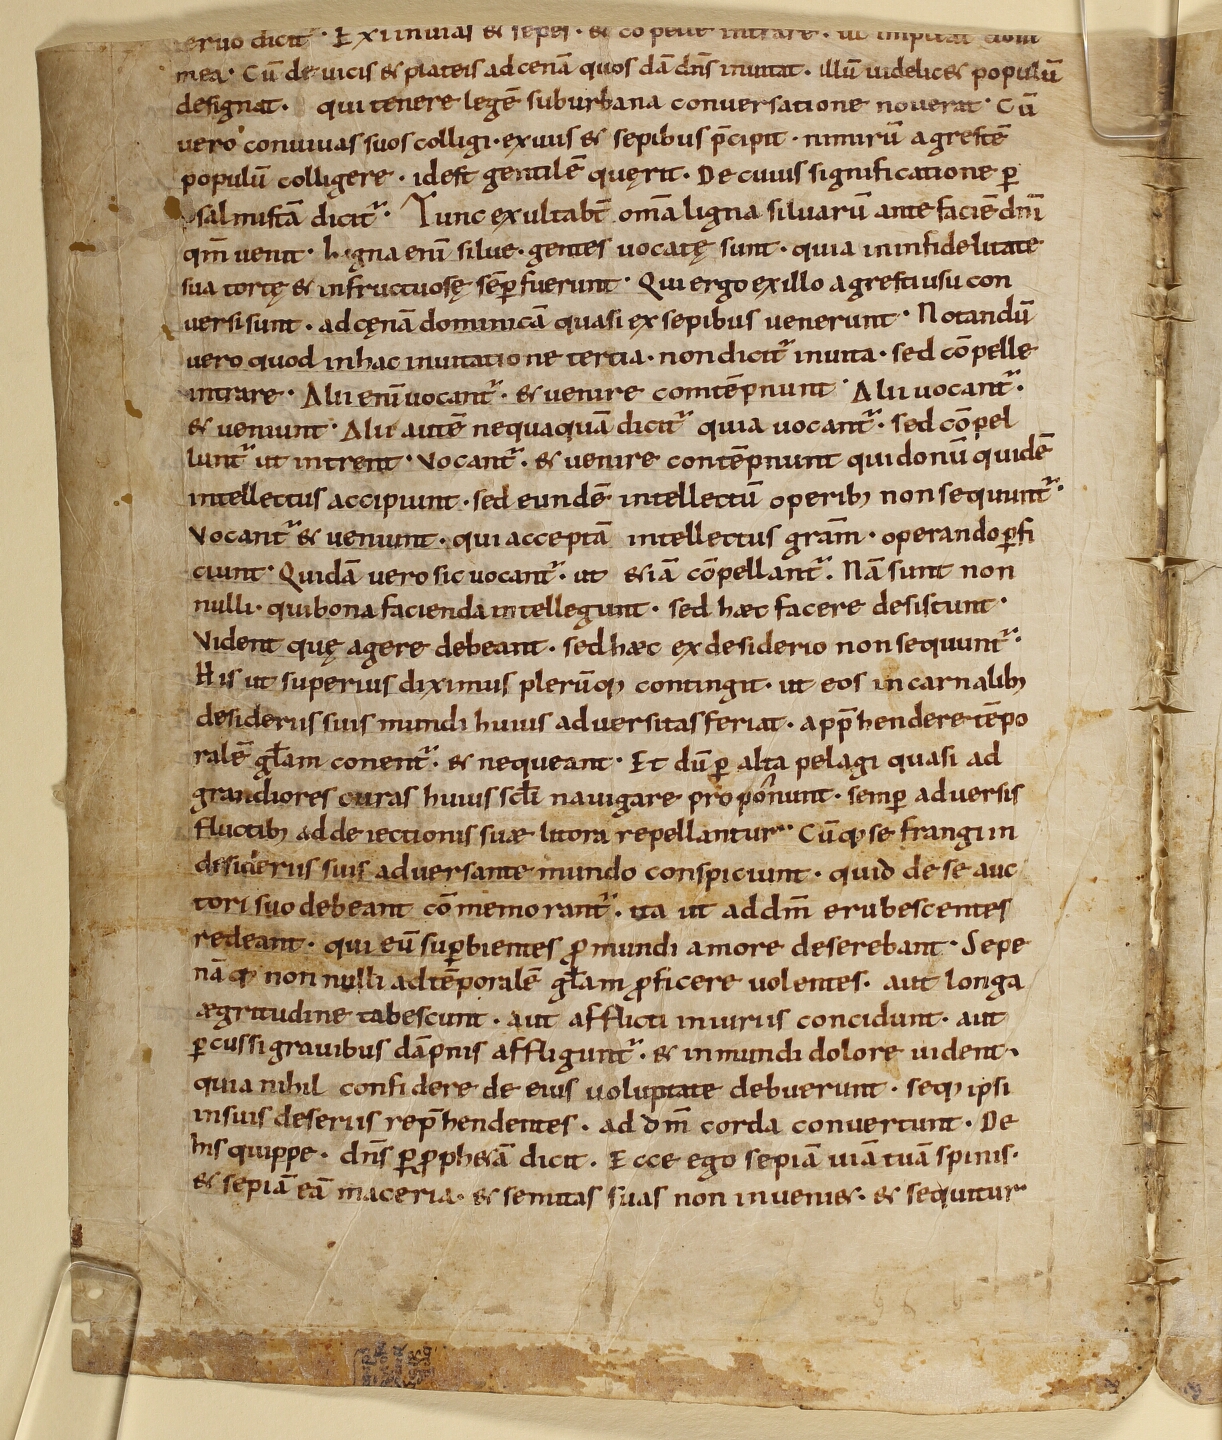 seruo dicit̃ · Exi in uias & sepes · & cõpelle intrare · ut impleat̃ domꝰ
mea · Cũ de uicis & plateis ad cenã quosdã dñs inuitat · illũ uidelic& populũ
designat · qui tenere legẽ sub urbana conuersatione nouerat · Cũ
uero conuiuas suos colligi · ex uiis & sepibus p̃cipit · nimirũ agrestẽ
populũ colligere · id est gentilẽ quęrit · De cuius significatione ꝑ
psalmistã dicit̃ · Tunc exultabt̃ om̃a ligna siluarũ ante faciẽ dñi
qm̃ uenit · Ligna eni̅ silue · gentes uocatę sunt · quia in infidelitate
sua tortę & infructuosę sẽꝑ fuerunt · Qui ergo ex illo agresti usu con
uersi sunt · ad cęnã dominicã quasi ex sepibus uenerunt · Notandũ
uero quod in hac inuitatione tertia · non dicit̃ inuita · sed cõpelle
intrare · Alii eni̅ uocant̃ · & uenire comtẽpnunt · Alii uocant̃ ·
& ueniunt · Alii autẽ nequaquã dicit̃ quia uocant̃ · sed cõpel
lunt̃ ut intrent · Vocant̃ · & uenire contẽpnunt qui donũ quidẽ
intellectus accipiunt · sed eundẽ intellectũ operibꝫ non sequunt̃ ·
Vocant̃ & ueniunt · qui acceptã intellectus grãm · operando ꝑfi
ciunt · Quidã uero sic uocant̃ · ut &iã cõpellant̃ · Nã sunt non
nulli · qui bona facienda intellegunt · sed hæc facere desistunt ·
Vident quę agere debeant · sed hæc ex desiderio non sequunt̃ ·
His ut superius diximus plerũqꝫ contingit · ut eos in carnalibꝫ
desideriis suis mundi huius aduersitas feriat · app̃hendere tẽpo
ralẽ gl̃am conent̃ · & nequeant · Et dũ ꝑ alta pelagi quasi ad
grandiores curas huius sc̃li nauigare proponunt · semꝑ aduersis
fluctibꝫ ad deiectionis suæ litora repellantur · Cũqꝫ se frangi in
desideriis suis aduersante mundo conspiciunt · quid de se auc
tori suo debeant cõmemorant̃ · ita ut ad dm̃ erubescentes
redeant · qui eũ suꝑbientes ꝓ mundi amore deserebant · Sepe
nãqꝫ non nulli ad tẽporalẽ gl̃am ꝓficere uolentes · aut longa
ægritudine tabescunt · aut afflicti iniuriis concidunt · aut
ꝑcussi grauibus dãpnis affligunt̃ · & in mundi dolore uident ·
quia nihil confidere de eius uoluptate debuerunt · seqꝫ ipsi
in suis deseriis rep̃hendentes · ad dm̃ corda conuertunt · De
his quippe · dñs ꝑ ꝓph&ã dicit · Ecce ego sepiã uiã tuã spinis ·
& sepiã eã maceria · & semitas suas non inueni& · & sequitur